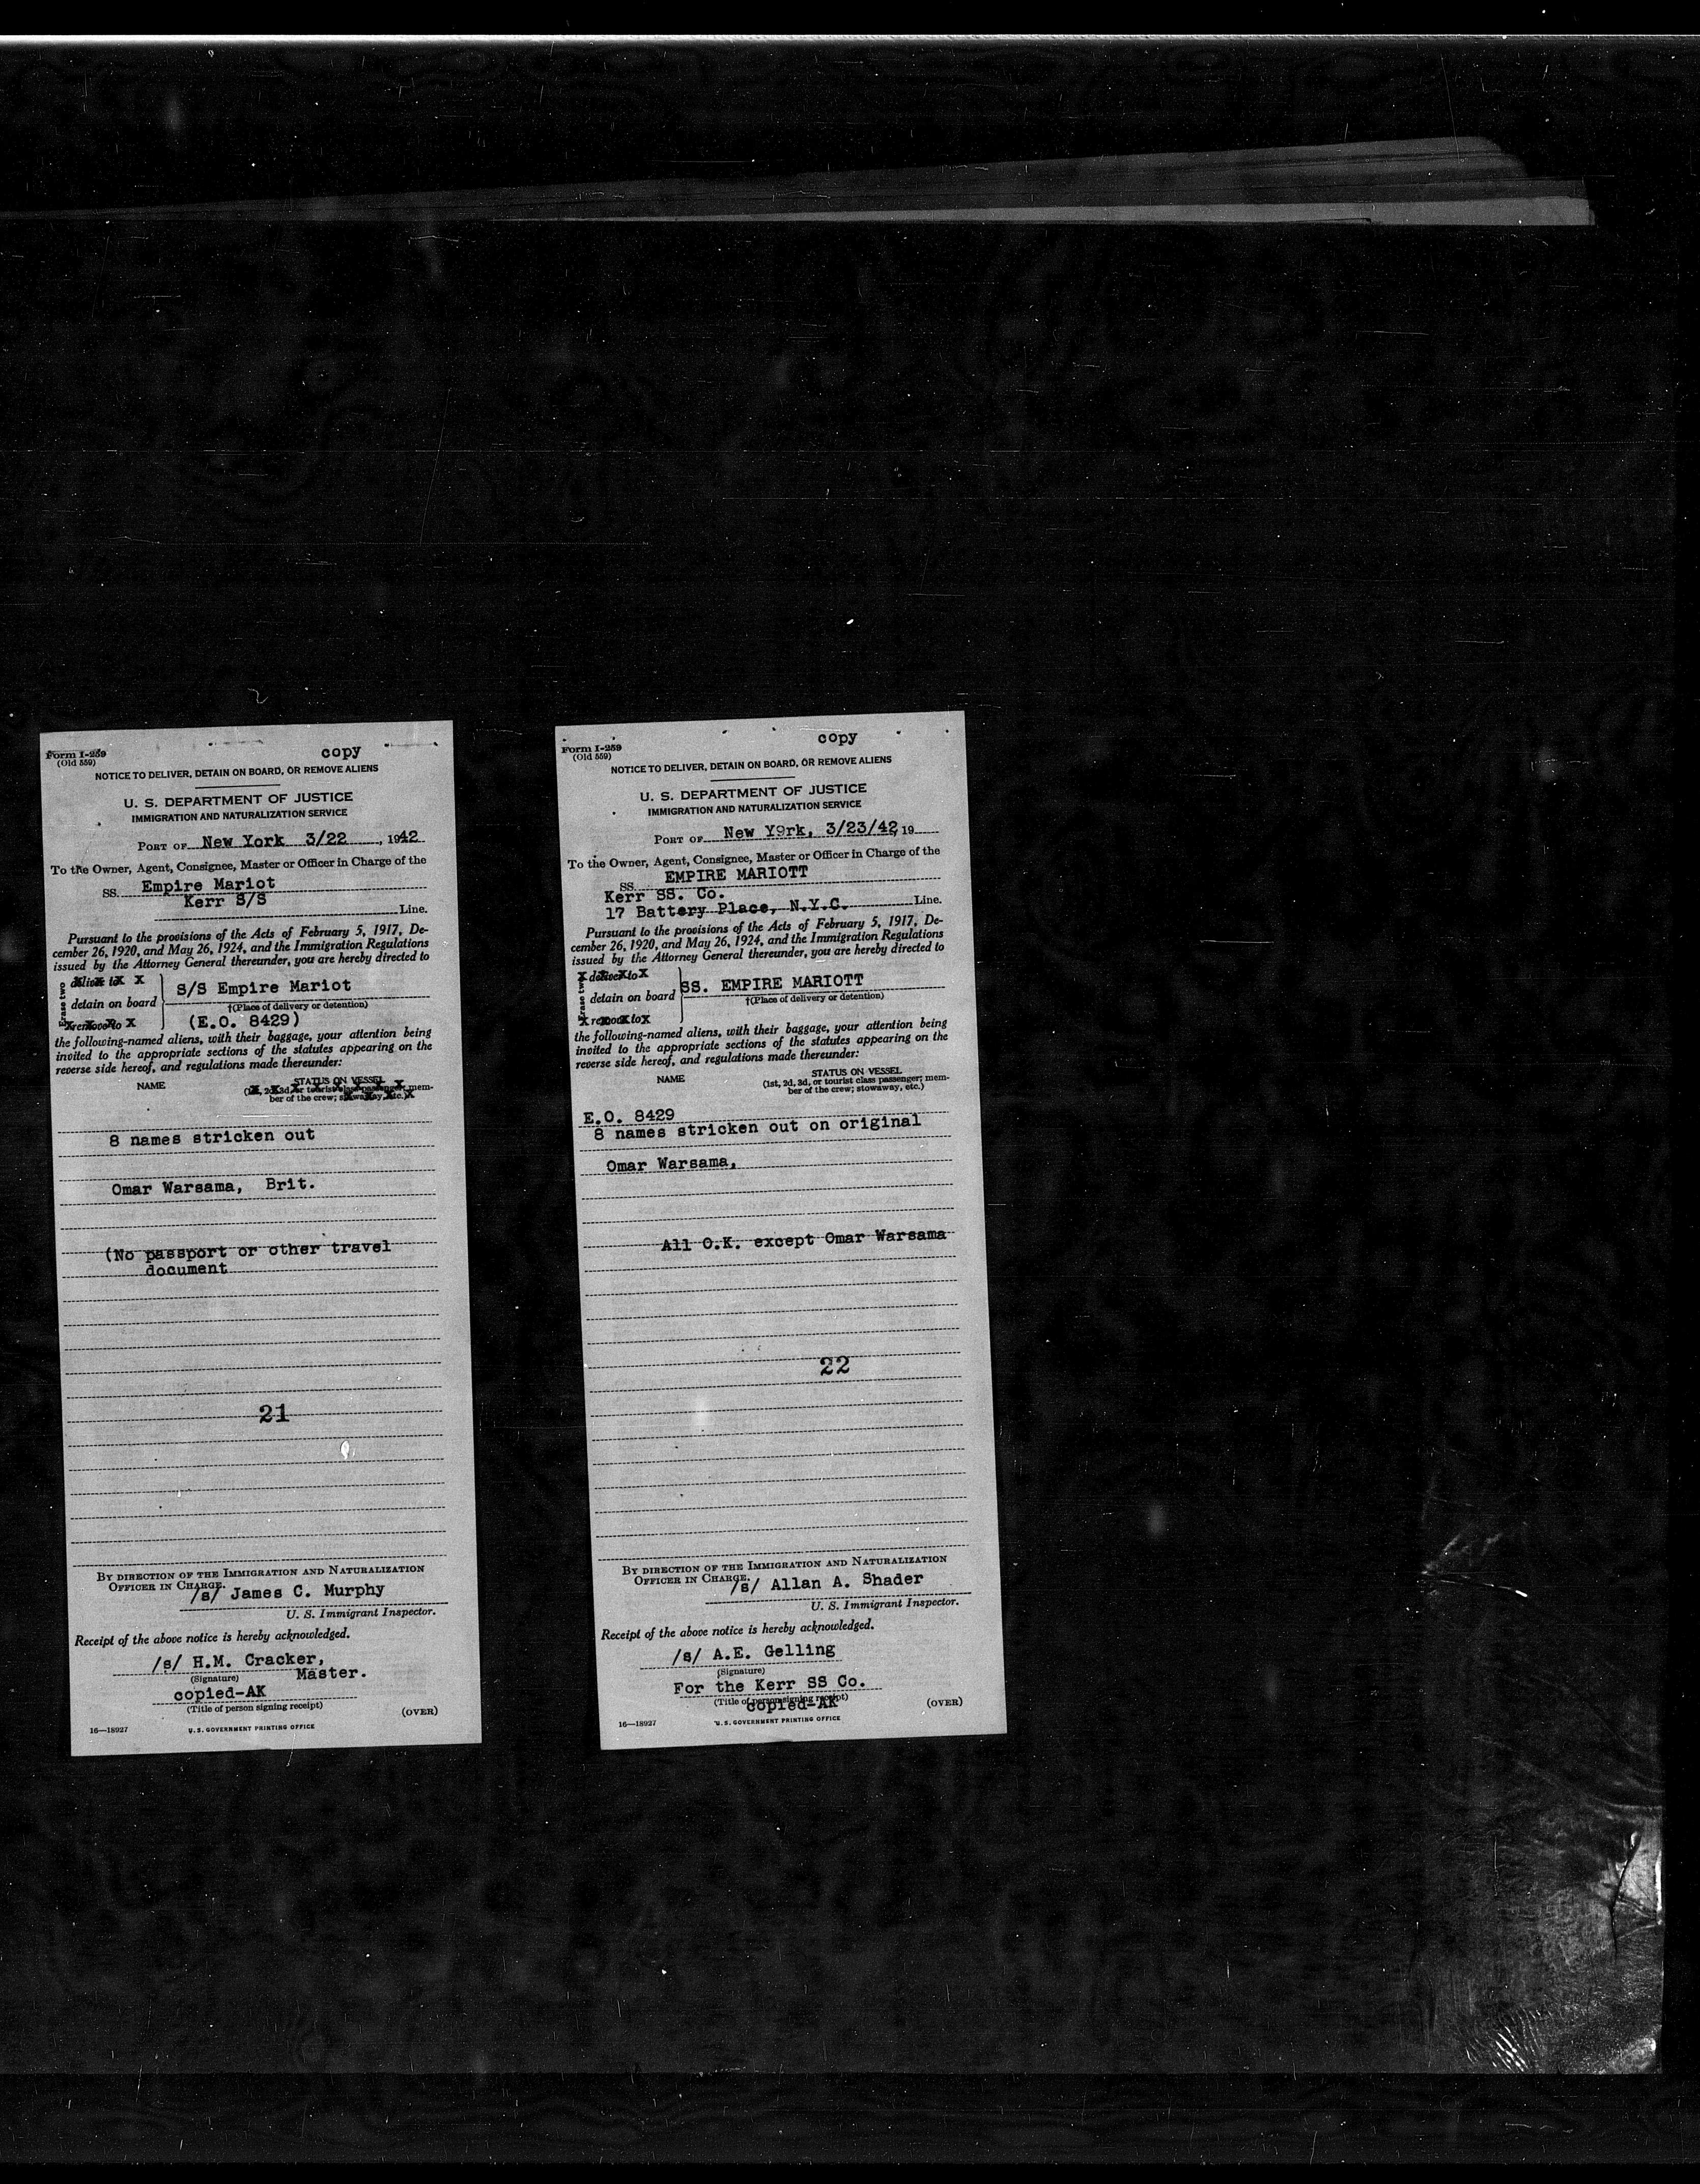 Form I-259
(Old 559)
copy
NOTICE TO DELIVER, DETAIN ON BOARD, OR REMOVE ALIENS
U. S. DEPARTMENT OF JUSTICE
IMMIGRATION AND NATURALIZATION SERVICE
PORT OF New York 3/22, 1942
To the Owner, Agent, Consignee, Master or Officer in Charge of the
SS. Empire Mariot
Kerr S/S
Line.
Pursuant to the provisions of the Acts of February 5, 1917, De-
cember 26, 1920, and May 26, 1924, and the Immigration Regulations
issued by the Attorney General thereunder, you are hereby directed to
Erase two
deliver to
detain on board
remove to
S/S Empire Mariot
†(Place of delivery or detention)
(E.O. 8429)
the following-named aliens, with their baggage, your attention being
invited to the appropriate sections of the statutes appearing on the
reverse side hereof, and regulations made thereunder:
NAME
STATUS ON VESSEL
(1st, 2d, 3d, or tourist class passenger; mem-
ber of the crew; stowaway, etc.)
8 names stricken out
Omar Warsama, Brit.
(No passport or other travel
document
21
BY DIRECTION OF THE IMMIGRATION AND NATURALIZATION
OFFICER IN CHARGE.
/s/ James C. Murphy
U. S. Immigrant Inspector.
Receipt of the above notice is hereby acknowledged.
/s/ H.M. Cracker,
(Signature) Master.
copied-AK
(Title of person signing receipt)
(OVER)
16—18927 U. S. GOVERNMENT PRINTING OFFICE
Form I-259
(Old 559)
copy
NOTICE TO DELIVER, DETAIN ON BOARD, OR REMOVE ALIENS
U. S. DEPARTMENT OF JUSTICE
IMMIGRATION AND NATURALIZATION SERVICE
PORT OF New York, 3/23/42, 19
To the Owner, Agent, Consignee, Master or Officer in Charge of the
SS. EMPIRE MARIOTT
Kerr SS. Co.
17 Battery Place, N.Y.C. Line.
Pursuant to the provisions of the Acts of February 5, 1917, De-
cember 26, 1920, and May 26, 1924, and the Immigration Regulations
issued by the Attorney General thereunder, you are hereby directed to
Erase two
deliver to
detain on board
remove to
SS. EMPIRE MARIOTT
†(Place of delivery or detention)
the following-named aliens, with their baggage, your attention being
invited to the appropriate sections of the statutes appearing on the
reverse side hereof, and regulations made thereunder:
NAME
STATUS ON VESSEL
(1st, 2d, 3d, or tourist class passenger; mem-
ber of the crew; stowaway, etc.)
E.O. 8429
8 names stricken out on original
Omar Warsama,
All O.K. except Omar Warsama
22
BY DIRECTION OF THE IMMIGRATION AND NATURALIZATION
OFFICER IN CHARGE.
/s/ Allan A. Shader
U. S. Immigrant Inspector.
Receipt of the above notice is hereby acknowledged.
/s/ A.E. Gelling
(Signature)
For the Kerr SS Co.
(Title of person signing receipt)
copied-AK
(OVER)
16—18927 U. S. GOVERNMENT PRINTING OFFICE